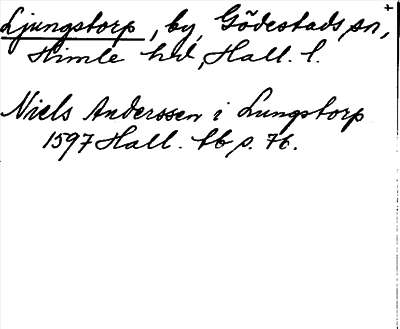 Ljungstorp, by, Gödestads sn,
Himle hd, Hall. l.
Niels Anderssen i Lungstorp
1597 Hall. tb s. 76.